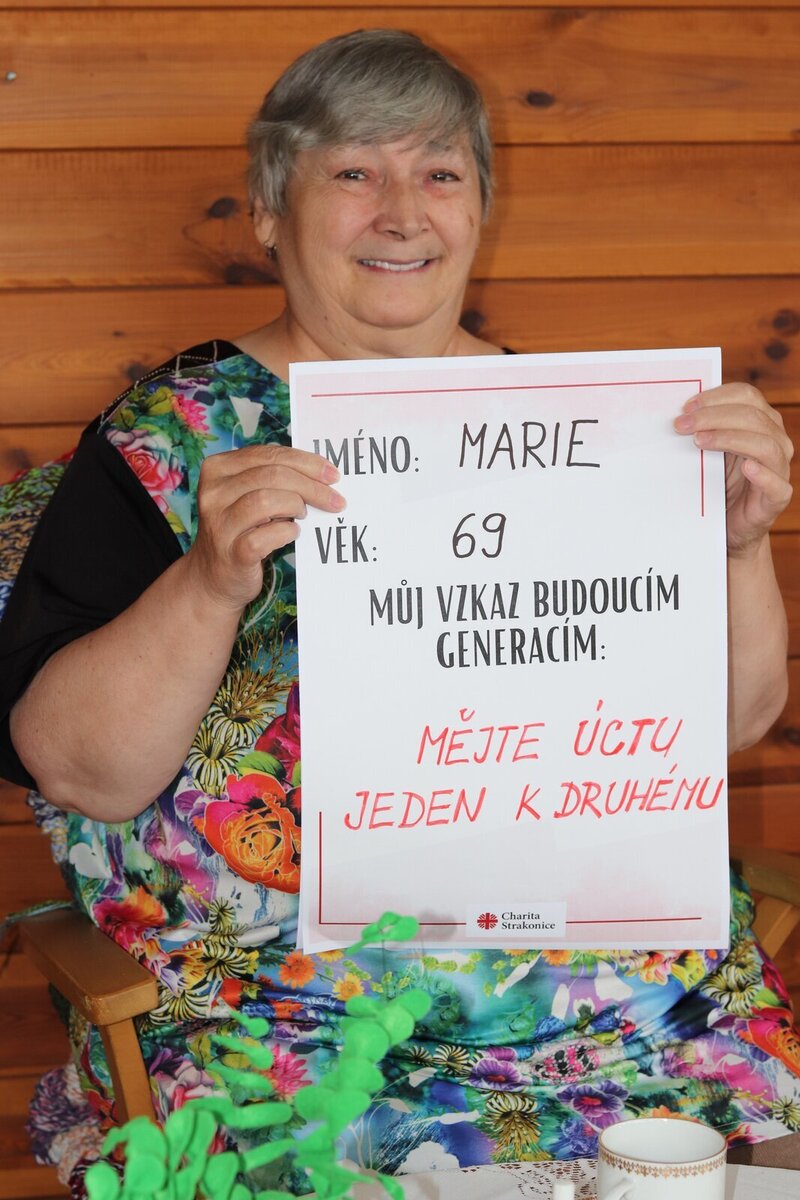 JMÉNO: MARIE
VĚK: 69
MŮJ VZKAZ BUDOUCÍM
GENERACÍM:
MĚJTE ÚCTU
JEDEN K DRUHÉMU
Charita
Strakonice